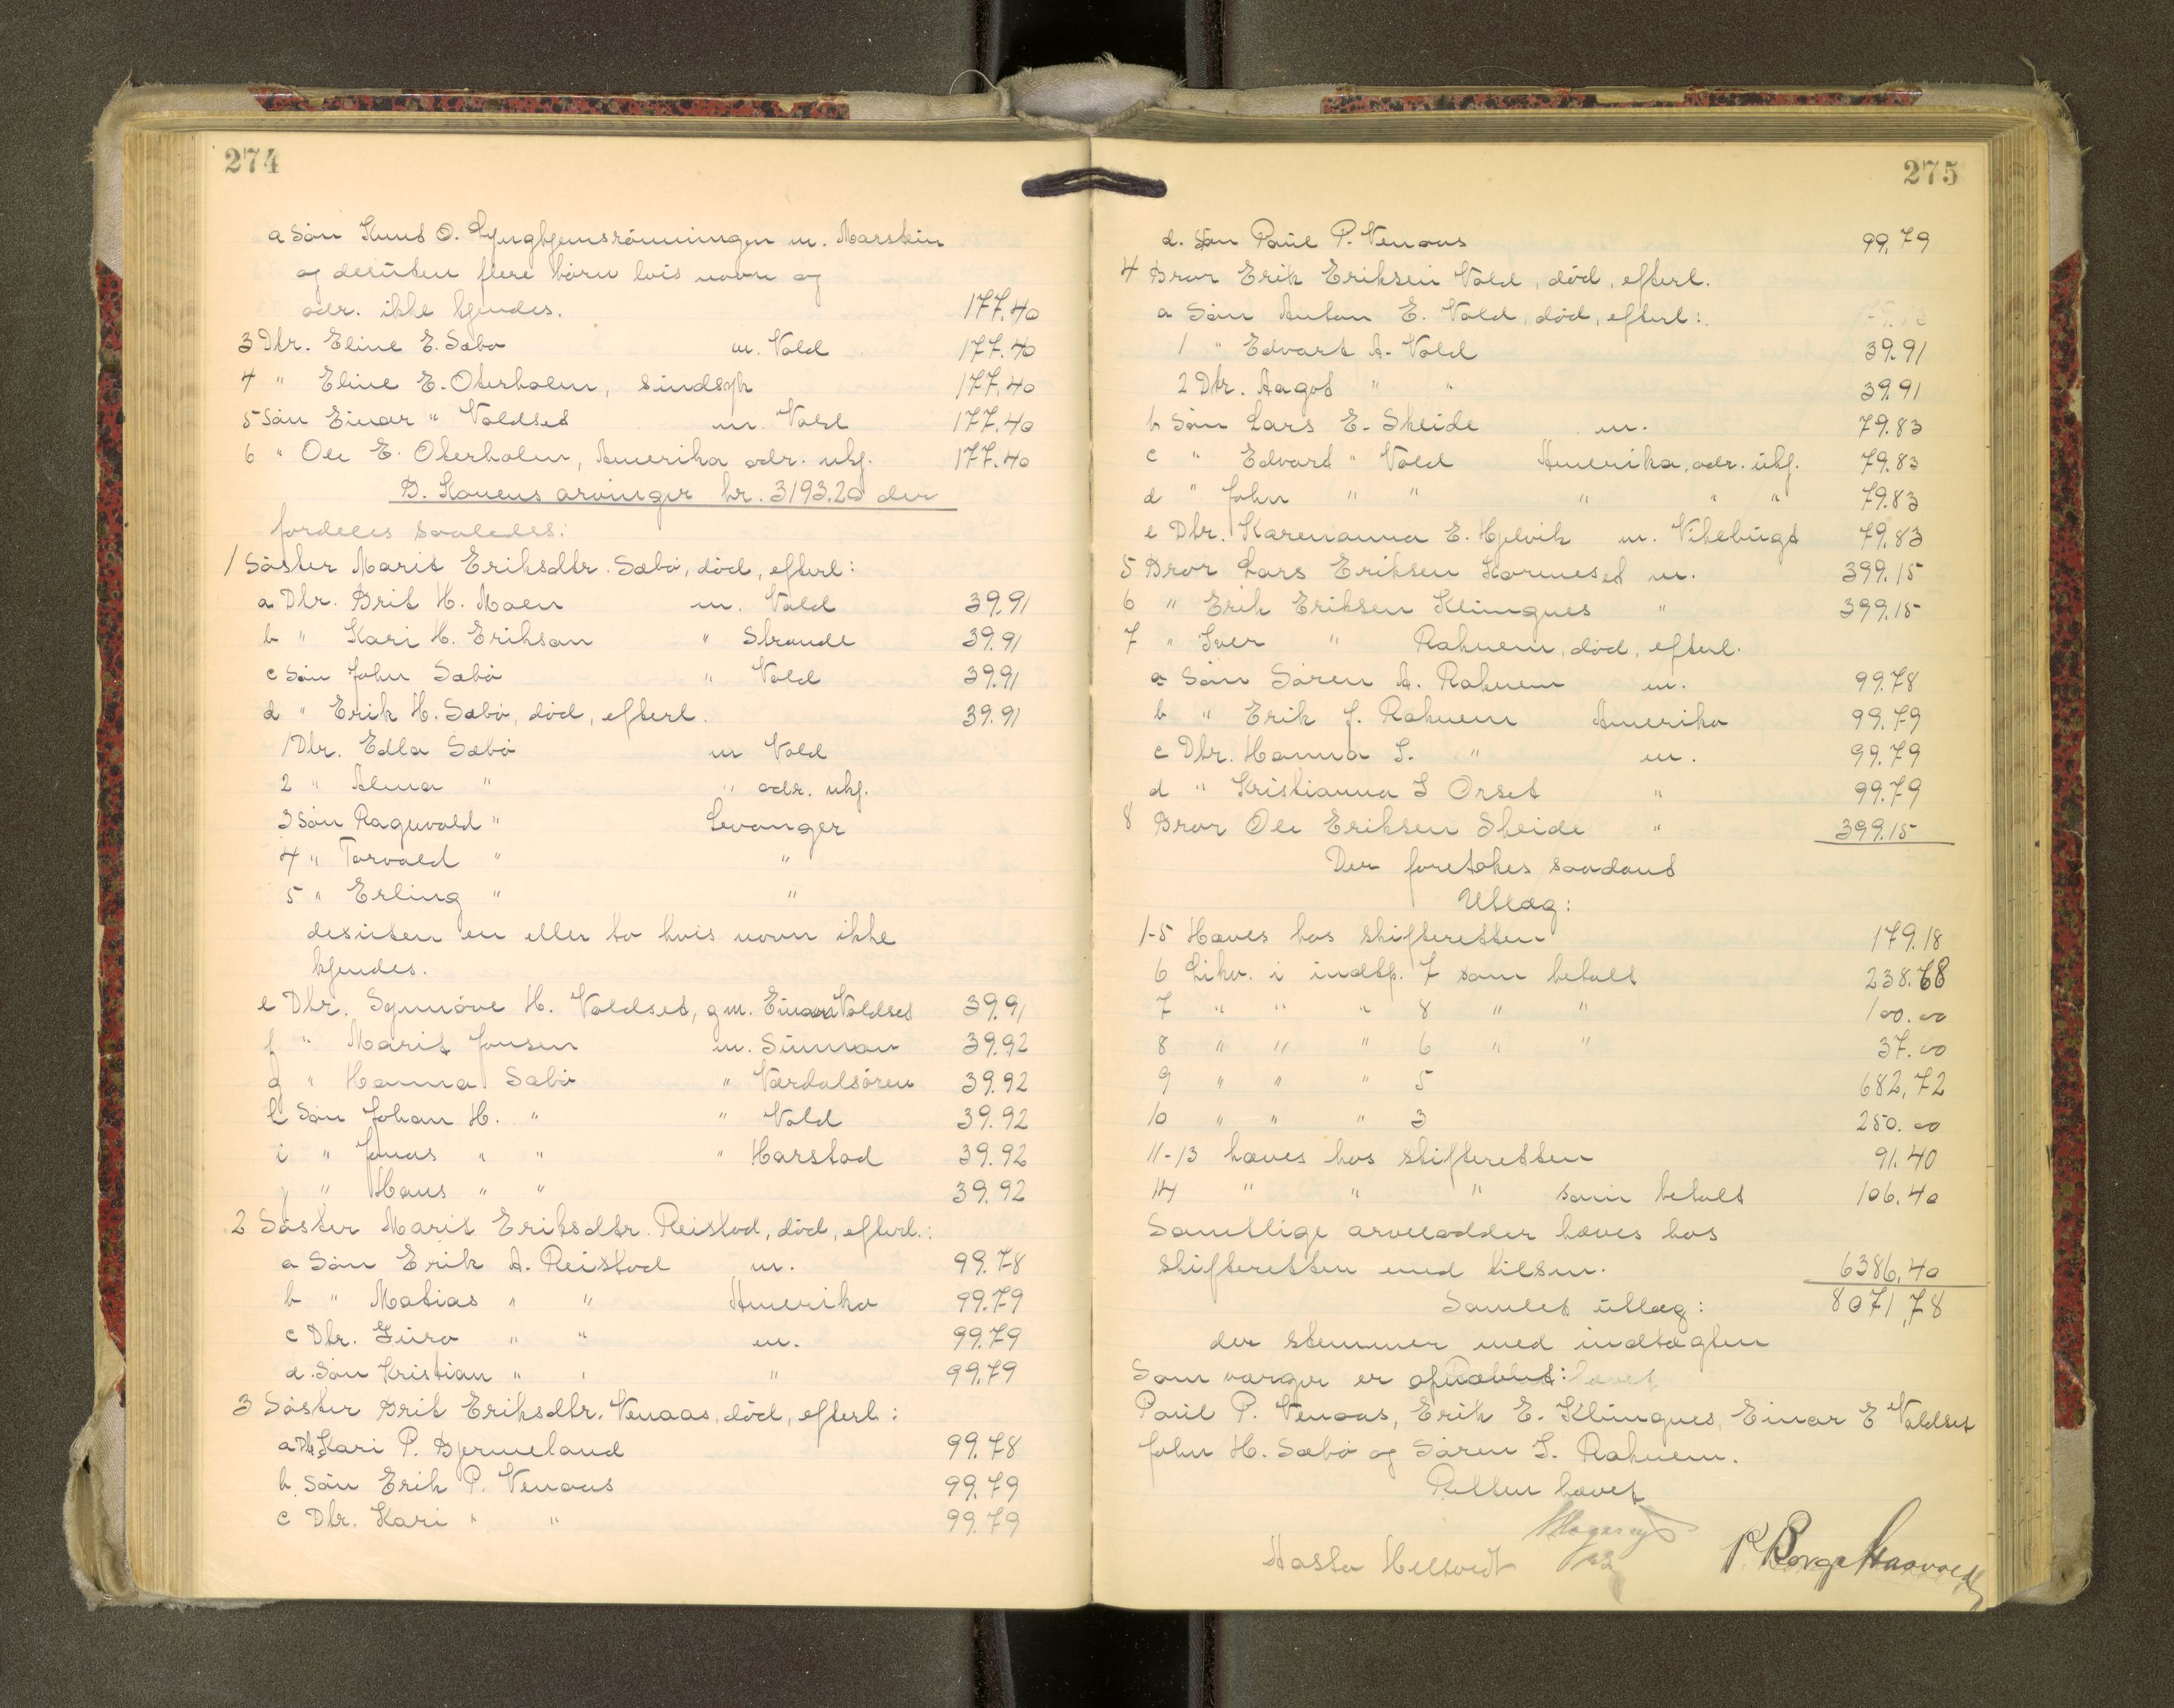 274
a Søn Knud O. Lynghjemsrønningen m. Marstein
og desuten flere børn hvis navn og
adr. ikke kjendes. 177.40
3 Dtr. Eline E. Sæbø m. Vold 177.40
4 " Eline E. Oterholm, sindsyk 177.40
5 Søn Einar " Voldset m. Vold 177.40
6 " Ole E. Oterholm, Amerika adr. ukj. 177.40
B. Konens arvinger kr. 3193.20 der
fordeles saaledes:
1 Søster Marit Eriksdtr. Sæbø, død, efterl:
a Dtr. Brit H. Moen m. Vold 39.91
b " Kari H. Erikson " Strande 39.91
c Søn John Sæbø " Vold 39.91
d " Erik H. Sæbø, død, efterl. 39.91
1 Dtr. Edla Sæbø m Vold
2 " Alma " " adr. ukj.
3 Søn Ragnvald " Levanger
4 " Torvald " "
5 " Erling " "
desuten en eller to hvis navn ikke
kjendes.
e Dtr. Synnøve H. Voldset, g.m. Einar Voldset 39.91
f " Marit Jonsen m. Sunnan 39.92
g " Hanna Sæbø " Værdalsøren 39.92
h Søn Johan H. " " Vold 39.92
i " Jonas " " " Harstad 39.92
j " Hans " " 39.92
2 Søster Marit Eriksdtr. Reistad, død, efterl.:
a Søn Erik A. Reistad m. 99.78
b " Matias " " Amerika 99.79
c Dtr. Guro " " m. 99.79
d Søn Kristian " " " 99.79
3 Søster Brit Eriksdtr. Venaas, død, efterl:
a Dtr. Kari P. Bjermeland 99.78
b Søn Erik P. Venaas 99.79
c Dtr. Kari " " 99.79
275
d. Søn Paul P. Venaas 99.79
4 Bror Erik Eriksen Vold, død, efterl.
a Søn Anton E. Vold, død, efterl:
1 " Edvart A. Vold 39.91
2 Dtr. Aagot " " 39.91
b Søn Lars E. Skeide m. 79.83
c " Edvard " Vold Amerika, adr. ukj. 79.83
d " John " " " " " 79.83
e Dtr. Karenanna E. Hjelvik m. Vikebugt 79.83
5 Bror Lars Eriksen Horneset m. 399.15
6 " Erik Eriksen Klungnes " 399.15
7 " Iver " Raknem, død, efterl.
a Søn Søren A. Raknem m. 99.78
b " Erik J. Raknem Amerika 99.79
c Dtr. Hanna I. " m. 99.79
d " Kristianna I Orset " 99.79
8 Bror Ole Eriksen Skeide " 399.15
Der foretokes saadant
Utlæg:
1-5 Hæves hos skifteretten 179.18
6 Likv. i indtp. 7 som betalt 238.68
7 " " " 8 " " 100.00
8 " " " 6 " " 37.00
9 " " " 5 682,72
10 " " " 3 250.00
11-13 hæves hos skifteretten 91.40
14 " " " som betalt 106.40
Samtlige arvelodder hæves hos
skifteretten med tilsm. 6386,40
Samlet utlæg: 8071,78
der stemmer med indtægten
Som værger er opnævnt:
Paul P. Venaas, Erik E. Klungnes, Einar E Voldset
John H. Sæbø og Søren I. Raknem.
Retten hævet
Aasta Heltvedt